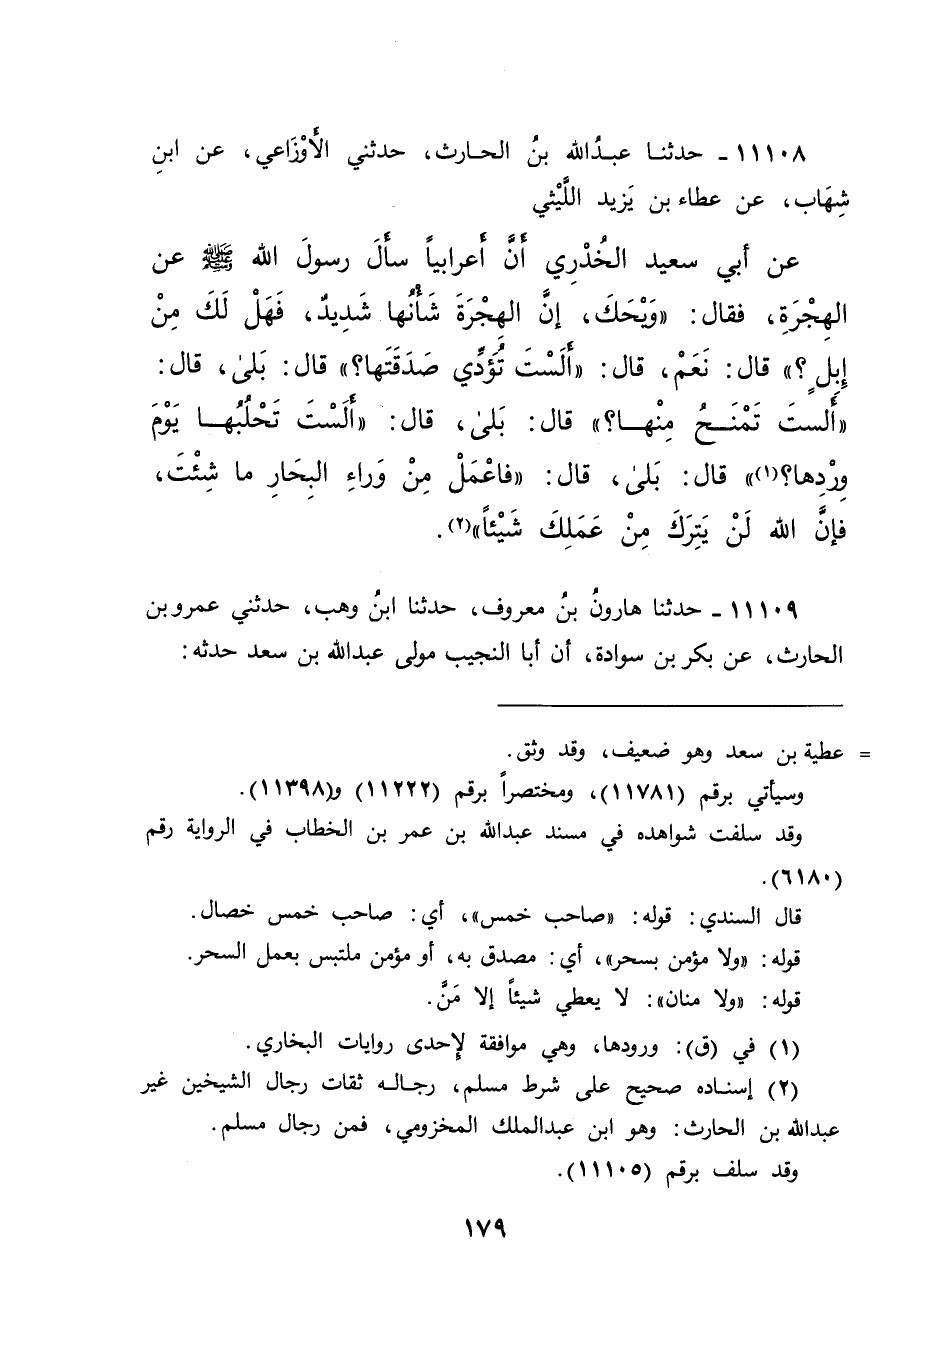 ١١١٠٨ ـ حدثنـا عبـدُالله بنُ الحـارث، حدثني الأَوْزَاعي، عن ابنِ
شِهَاب، عن عطاء بن يَزيد اللَّيْثي
عن أبي سعيد الخُدْرِي أَنَّ أَعرابياً سأَلَ رسولَ الله ﷺ عن
الهِجْرَةِ، فقال: «وَيْحَكَ، إنَّ الهِجْرَةَ شَأْنُها شَدِيدٌ، فَهَلْ لَكَ مِنْ
إِبِلٍ؟» قال: نَعَمْ، قال: «أَلَسْتَ تُؤَدِّي صَدَقَتَها؟» قال: بَلىٰ، قال:
«أَلستَ تَمْنَــحُ مِنْهــا؟» قال: بَلىٰ، قال: «أَلَسْتَ تَحْلُبُهــا يَوْمَ
وِرْدِها؟(١)» قال: بَلىٰ، قال: «فاعْمَلْ مِنْ وَراءِ البِحَارِ ما شِئْتَ،
فإنَّ الله لَنْ يَتِرَكَ مِنْ عَمَلِكَ شَيْئاً»(٢).
١١١٠٩ ـ حدثنا هارونُ بنُ معروف، حدثنا ابنُ وهب، حدثني عمرو بن
الحارث، عن بكر بن سوادة، أن أبا النجيب مولى عبدالله بن سعد حدثه:
= عطية بن سعد وهو ضعيف، وقد وثق.
وسيأتي برقم (١١٧٨١)، ومختصراً برقم (١١٢٢٢) و(١١٣٩٨).
وقد سلفت شواهده في مسند عبدالله بن عمر بن الخطاب في الرواية رقم
(٦١٨٠).
قال السندي: قوله: «صاحب خمس»، أي: صاحب خمس خصال.
قوله: «ولا مؤمن بسحر»، أي: مصدق به، أو مؤمن ملتبس بعمل السحر.
قوله: «ولا منان»: لا يعطي شيئاً إلا مَنَّ.
(١) في (ق): ورودها، وهي موافقة لإحدى روايات البخاري.
(٢) إسنـاده صحيح على شرط مسلم، رجـالـه ثقات رجال الشيخين غير
عبدالله بن الحارث: وهو ابن عبدالملك المخزومي، فمن رجال مسلم.
وقد سلف برقم (١١١٠٥).
١٧٩